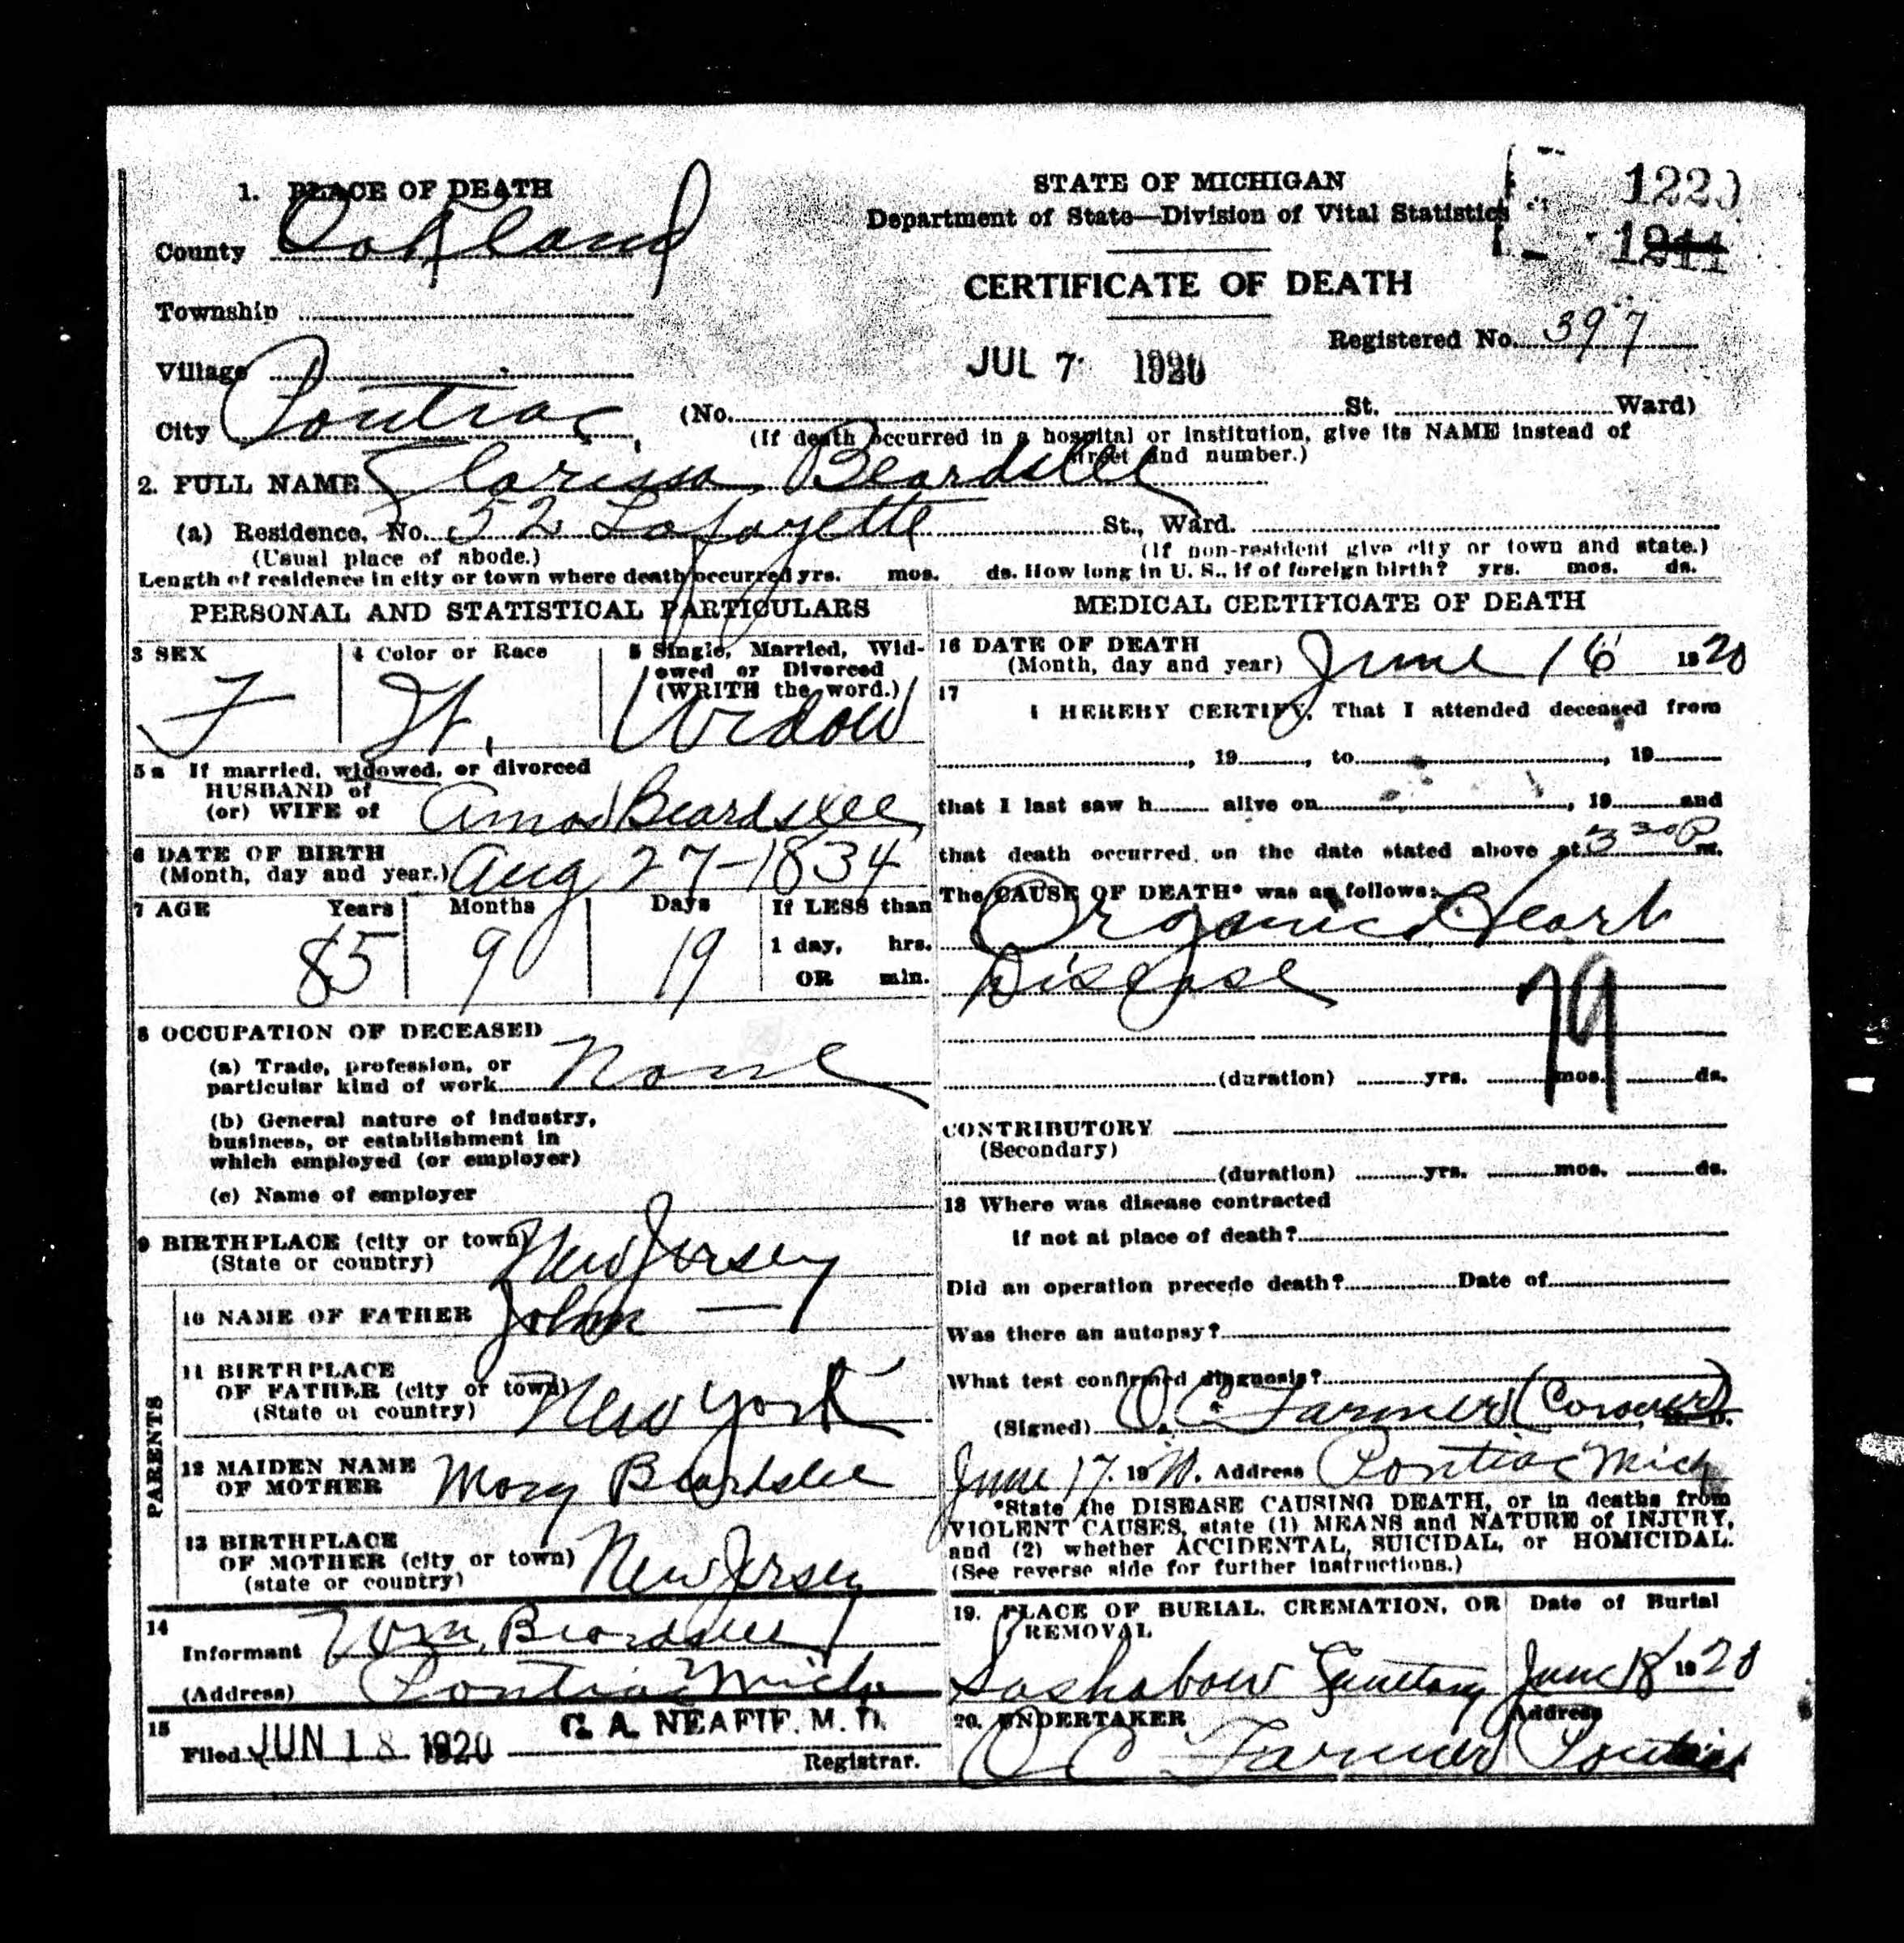 1. PLACE OF DEATH
County Oakland
Township
Village
City Pontiac
STATE OF MICHIGAN
Department of State—Division of Vital Statistics
CERTIFICATE OF DEATH
1220
1211
Registered No. 397
JUL 7 1920
(No. St. Ward)
(If death occurred in a hospital or institution, give its NAME instead of
street and number.)
2. FULL NAME Clarissa Beardslee
(a) Residence, No. 52 Lafayette St., Ward.
(Usual place of abode.) (If non-resident give city or town and state.)
Length of residence in city or town where death occurred yrs. mos. ds. How long in U. S., if of foreign birth? yrs. mos. ds.
PERSONAL AND STATISTICAL PARTICULARS
3 SEX
F
4 Color or Race
W.
5 Single, Married, Wid-
owed or Divorced
(WRITE the word.)
Widow
5a If married, widowed, or divorced
HUSBAND of
(or) WIFE of Amos Beardslee
6 DATE OF BIRTH
(Month, day and year.) Aug 27-1834
7 AGE Years Months Days If LESS than
1 day, hrs.
85 9 19
OR min.
8 OCCUPATION OF DECEASED
(a) Trade, profession, or
particular kind of work None
(b) General nature of industry,
business, or establishment in
which employed (or employer)
(c) Name of employer
9 BIRTHPLACE (city or town)
(State or country) New Jersey
PARENTS
10 NAME OF FATHER John —
11 BIRTHPLACE
OF FATHER (city or town)
(State or country) New York
12 MAIDEN NAME
OF MOTHER Mary Beardslee
13 BIRTHPLACE
OF MOTHER (city or town)
(state or country) New Jersey
14
Informant Wm. Beardslee
(Address) Pontiac Mich
15
Filed JUN 18 1920 C. A. NEAFIE, M. D.
Registrar.
MEDICAL CERTIFICATE OF DEATH
16 DATE OF DEATH
(Month, day and year) June 16 1920
17
I HEREBY CERTIFY, That I attended deceased from
, 19 , to , 19
that I last saw h alive on , 19 and
that death occurred, on the date stated above at 3 30 P m.
The CAUSE OF DEATH* was as follows:
Organic Heart
Disease
79
(duration) yrs. mos. ds.
CONTRIBUTORY
(Secondary)
(duration) yrs. mos. ds.
18 Where was disease contracted
if not at place of death?
Did an operation precede death? Date of
Was there an autopsy?
What test confirmed diagnosis?
(Signed) O. C. Farmer (Coroner)
June 17. 1920. Address Pontiac Mich
*State the DISEASE CAUSING DEATH, or in deaths from
VIOLENT CAUSES, state (1) MEANS and NATURE of INJURY,
and (2) whether ACCIDENTAL, SUICIDAL, or HOMICIDAL.
(See reverse side for further instructions.)
19. PLACE OF BURIAL, CREMATION, OR
REMOVAL
Sashabaw Cemetary
Date of Burial
June 18 1920
20. UNDERTAKER
O C Farmer
Address
Pontiac